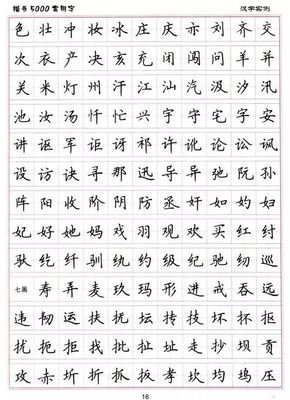 楷书5000常用字 汉字实例
色壮冲妆冰庄庆亦刘齐交
次衣产决亥充闭闯问羊并
关米灯州汗江汕汽汲汐汛
池汝汤忏忙兴宇守宅字安
讲讴军讵讶祁许讹论讼讽
设访诀寻那迅导异弛阮孙
阵阳收阶阴防丞奸如妁妇
妃好她妈戏羽观欢买红纣
驮纥纤驯纨约级纪驰纫巡
七画寿弄麦玖玛形进戒吞远
违韧运扶抚坛技坏抔拒
扰扼拒找批扯址走抄坝贡
攻赤圻折抓扳孝坎均坞压
16